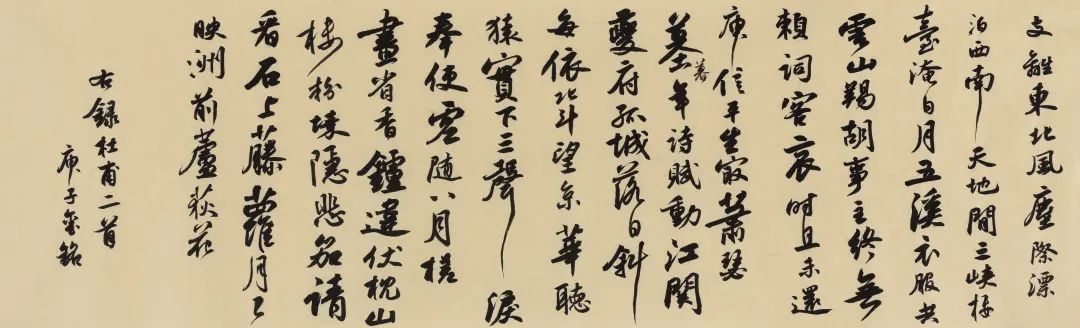 支離東北風塵際漂
泊西南天地間三峽樓
臺淹日月五溪衣服共
雲山羯胡事主終無
賴詞客哀時且未還
庾信平生最蕭瑟
墓暮年詩賦動江関
夔府孤城落日斜
每依北斗望京華聽
猿實下三聲淚
奉使虛隨八月槎
畫省香鑪違伏枕山
樓粉堞隱悲笳請
看石上藤蘿月已
映洲前蘆荻花
右錄杜甫二首
庚子銘